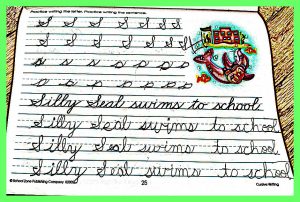 Practice writing the letter. Practice writing the sentence.
S S S S S S S
S S S S S S
s s s s s s s
s s s s s s
Silly Seal swims to school.
Silly Seal swims to school
Silly Seal swims to school
Silly Seal swims to school
© School Zone Publishing Company 25 Cursive Writing